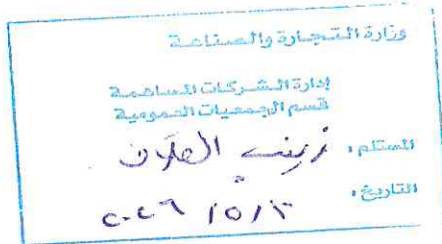 وزارة التجارة والصناعة
إدارة الشركات المساهمة
قسم الجمعيات العمومية
المستلم: زينب العلاف
التاريخ: